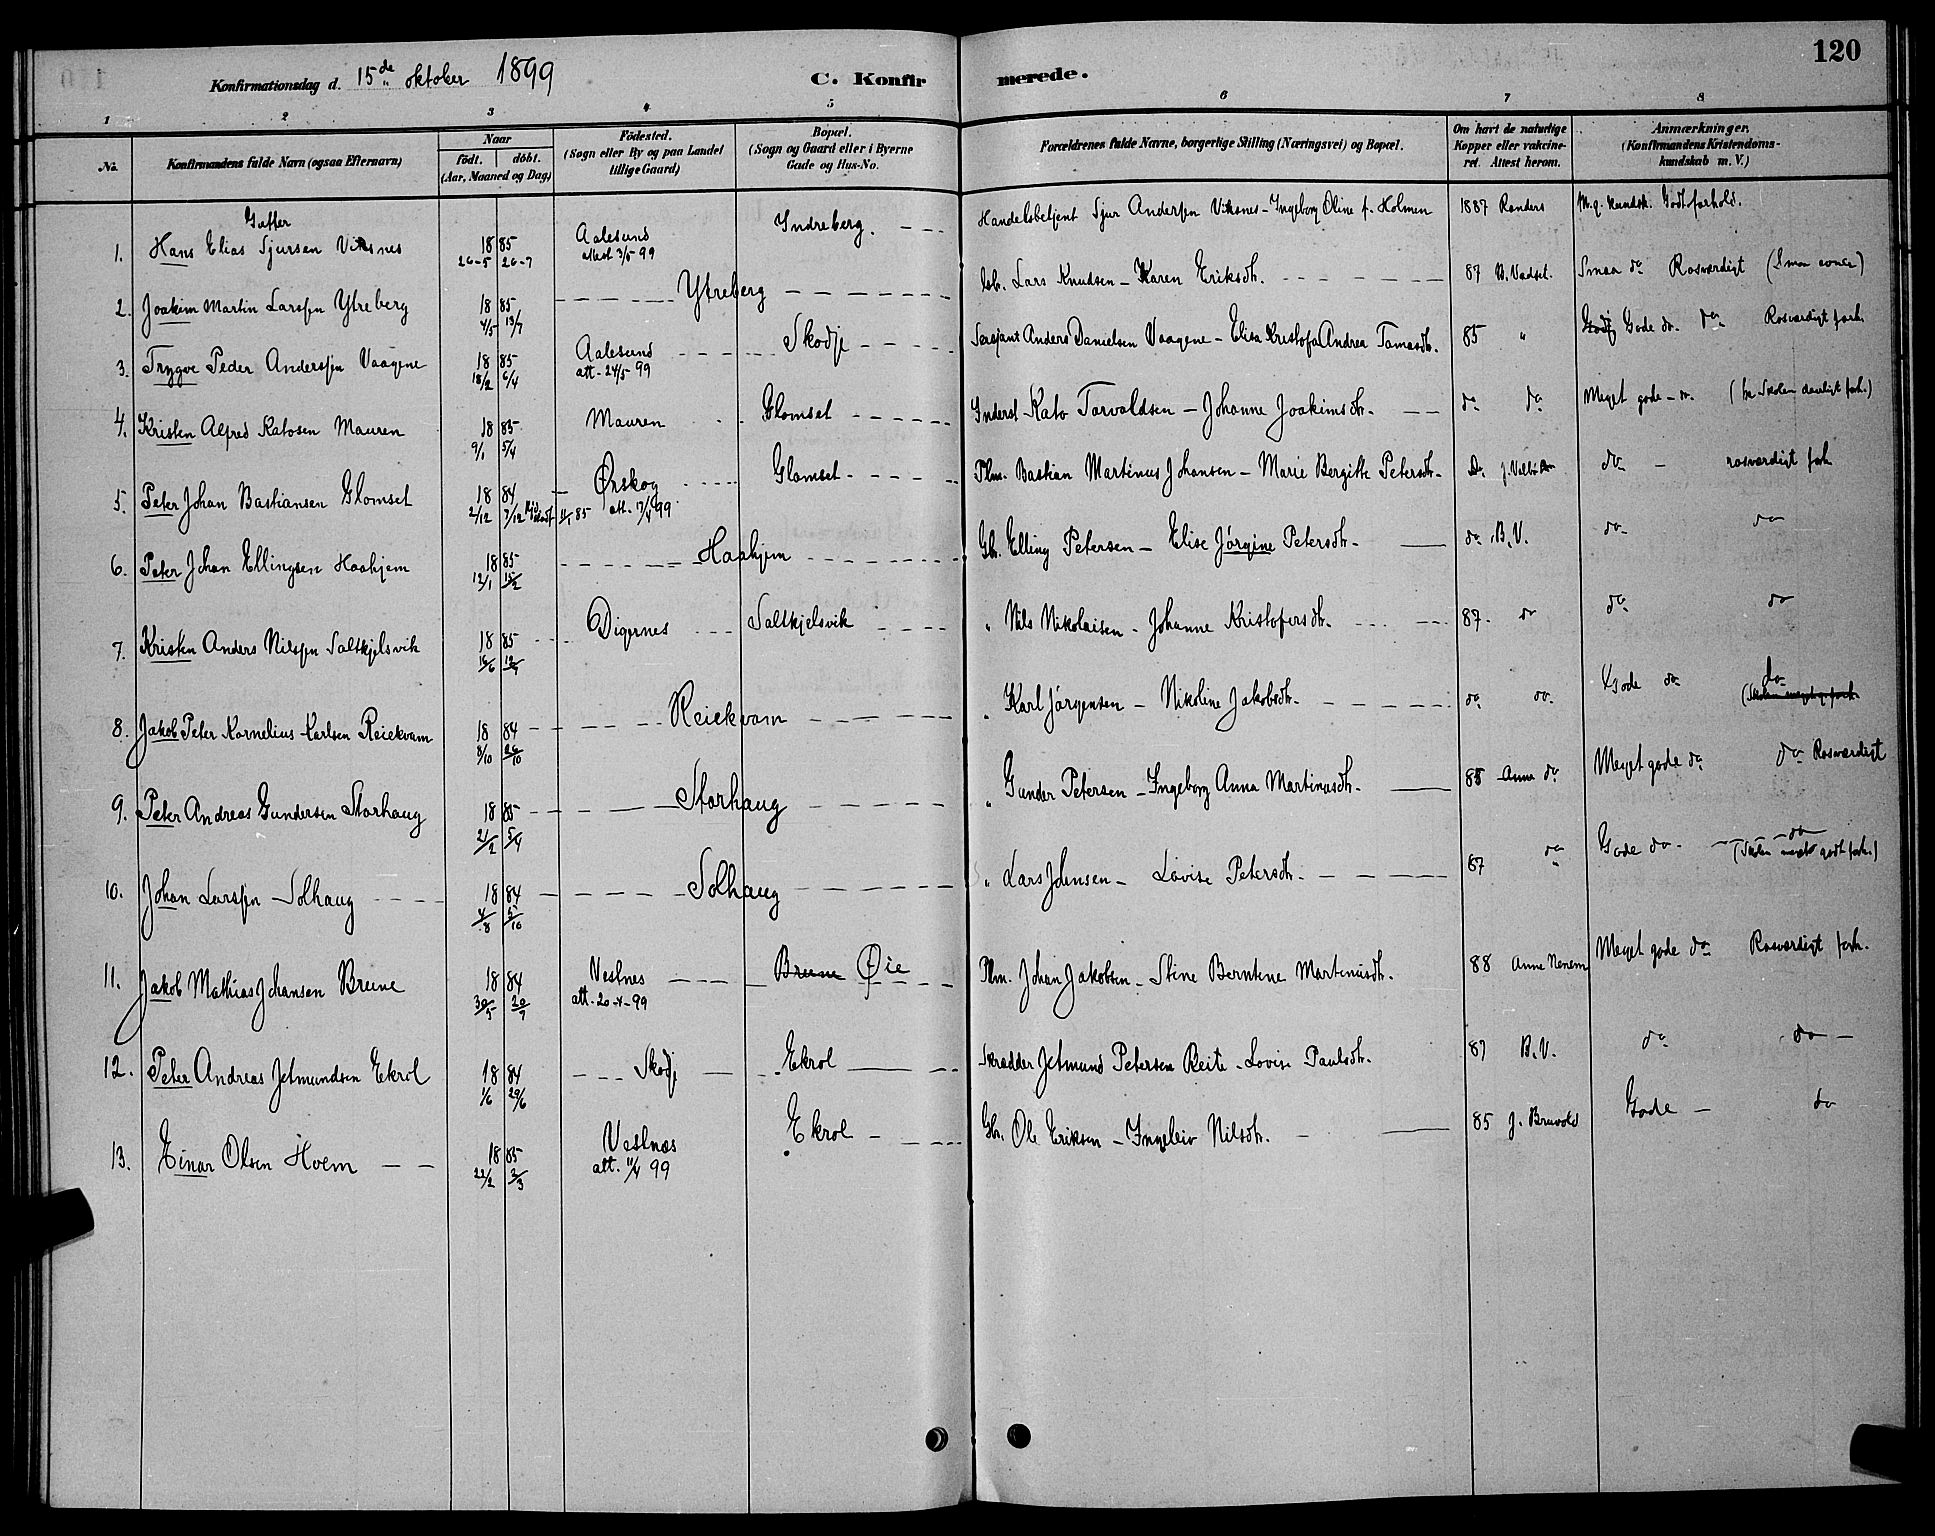 120
Konfirmationsdag d. 15de oktober 1899 C. Konfirmerede.
1 2 3 4 5 6 7 8
No. Konfirmandens fulde Navn (ogsaa Efternavn) Naar födt. döbt. (Aar, Maaned og Dag) Födested. (Sogn eller By og paa Landet tillige Gaard) Bopæl. (Sogn og Gaard eller i Byerne Gade og Hus-No. Forældrenes fulde Navne, borgerlige Stilling (Næringsvei) og Bopæl. Om havt de naturlige Kopper eller vakcineret. Attest herom. Anmærkninger. (Konfirmandens Kristendomskundskab m. V.)
Gutter
1. Hans Elias Sjursen Viksnes 1885 26-5 26-7 Aalesund attest 3/5 99 Indreberg. Handelsbetjent Sjur Andersen Viksnes - Ingeborg Oline f. Holmen 1887 Randers M. g. kundsk. Godt forhold.
2. Joakim Martin Larssen Ytreberg 1885 4/5 13/7 Ytreberg Lars Knudsen - Karen Eriksdtr. 87 B. Vadset. Smaa do Rosværdigt (Smaa evner)
3. Trygve Peder Anderssen Vaagene 1885 18/2 6/4 Aalesund att. 24/5 99 Skodje Sersjant Anders Danielsen Vaagene - Elisa Kristofa Andrea Tomasdtr. 85 " Gode do. do Rosværdigt forh.
4. Kristen Alfred Katosen Mauren 1885 9/1 5/4 Mauren Glomset Inderst Kato Torvaldsen - Johanne Joakimsdtr. do do Meget gode - do. (
5. Peter Johan Bastiansen Glomset 1884 2/12 7/12 11/1 85 Ørskog att. 17/4 99 Glomset Plm. Bastian Martinus Johansen - Marie Bergitte Petersdtr. Do. do - rosværdigt forh
6. Peter Johan Ellingsen Haahjem 1885 12/1 15/2 Haahjem Gbr. Elling Petersen - Elise Jørgine Petersdtr. do B.V. do do
7. Kristen Anders Nilssen Saltkjelsvik 1885 16/6 19/7 Digernes Saltkjelsvik " Nils Nikolaisen - Johanne Kristofersdtr. 87. do do do
8. Jakob Peter Kornelius Karlsen Reiekvam 1884 8/10 26/10 Reiekvam " Karl Jørgensen - Nikoline Jakobsdtr. do do. Gode do do
9. Peter Andreas Gundersen Storhaug 1885 21/2 5/4 Storhaug " Gunder Petersen - Ingeborg Anna Martinusdtr. 85 Anne do Meget gode do do Rosværdigt
10. Johan Larssen Solhaug 1884 4/8 5/10 Solhaug " Lars Jdensen - Lovise Petersdtr. 87 do " Gode do. do (Skolen meget godt forh.)
11. Jakob Mathias Johansen Brune 1884 30/5 20/7 Vestnes att. 20-4-99 Brune Øie Plm. Johan Jakobsen - Stine Berntine Martinusdtr. 88 Anne Nenem Meget gode do Rosværdigt forh.
12. Peter Andreas Jetmundsen Ekrol 1884 1/6 29/6 Skodje Ekrol Skrædder Jetmund Petersen Reite - Lovise Paulsdtr. 87 B.V. do do
13. Einar Olsen Hoem 1885 22/2 2/3 Vestnæs att. 11/4 99 Ekrol Gbr. Ole Eriksen - Ingeleiv Nilsdtr. 85 J. Bruvold Gode - do